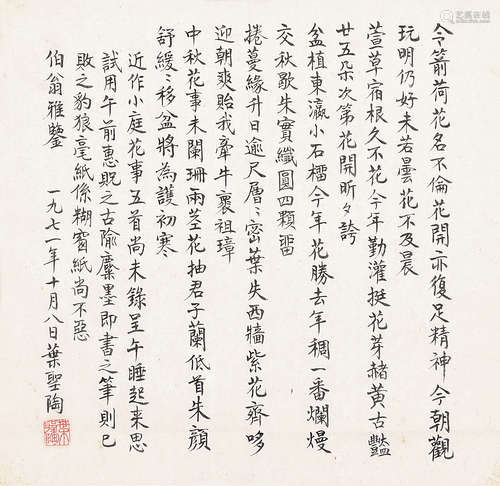 令箭荷花名不倫花開亦復足精神今朝觀
玩明仍好未若曇花不及晨
萱草宿根久不花今年勤灌挺花芽赭黃古豔
廿五朵次第花開昕夕誇
盆植東瀛小石榴今年花勝去年稠一番爛熳
交秋歇朱實纖圓四顆留
捲蔓緣升日逾尺層〻密葉失西牆紫花齊哆
迎朝爽貽我牽牛褱祖璋
中秋花事未闌珊兩莖花抽君子蘭低首朱顏
舒緩〻移盆將為護初寒
近作小庭花事五首尚未錄呈午睡起來思
試用午前惠貺之古隃麋墨即書之筆則已
敗之豹狼毫紙係糊窗紙尚不惡
伯翁雅鑒
一九七一年十月八日葉聖陶